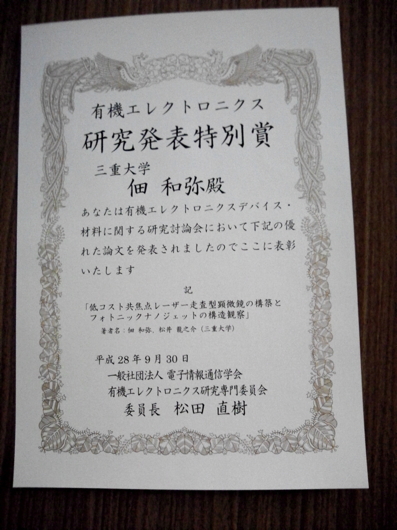 有機エレクトロニクス
研究発表特別賞
三重大学
佃 和弥殿
あなたは有機エレクトロニクスデバイス・
材料に関する研究討論会において下記の優
れた論文を発表されましたのでここに表彰
いたします
記
「低コスト共焦点レーザー走査型顕微鏡の構築と
フォトニックナノジェットの構造観察」
著者名:佃 和弥、松井 龍之介(三重大学)
平成28年9月30日
一般社団法人 電子情報通信学会
有機エレクトロニクス研究専門委員会
委員長 松田 直樹